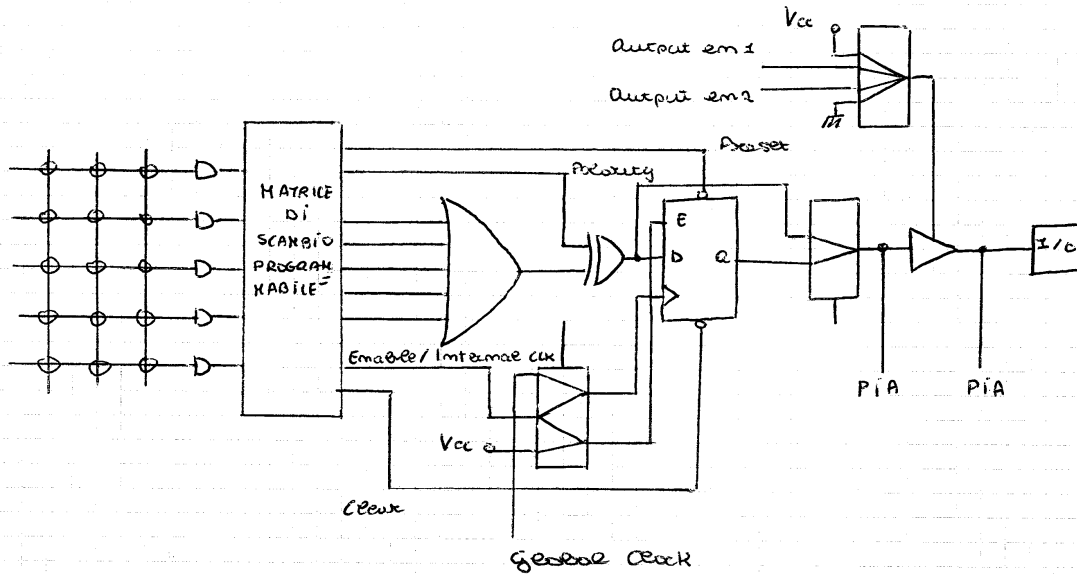 Vcc
Output en 1
Output en 2
Preset
Polarity
MATRICE
DI
SCAMBIO
PROGRAM
MABILE
E
D
Q
I/O
Enable / Internal CLK
PIA
PIA
Vcc
Clear
Global Clock